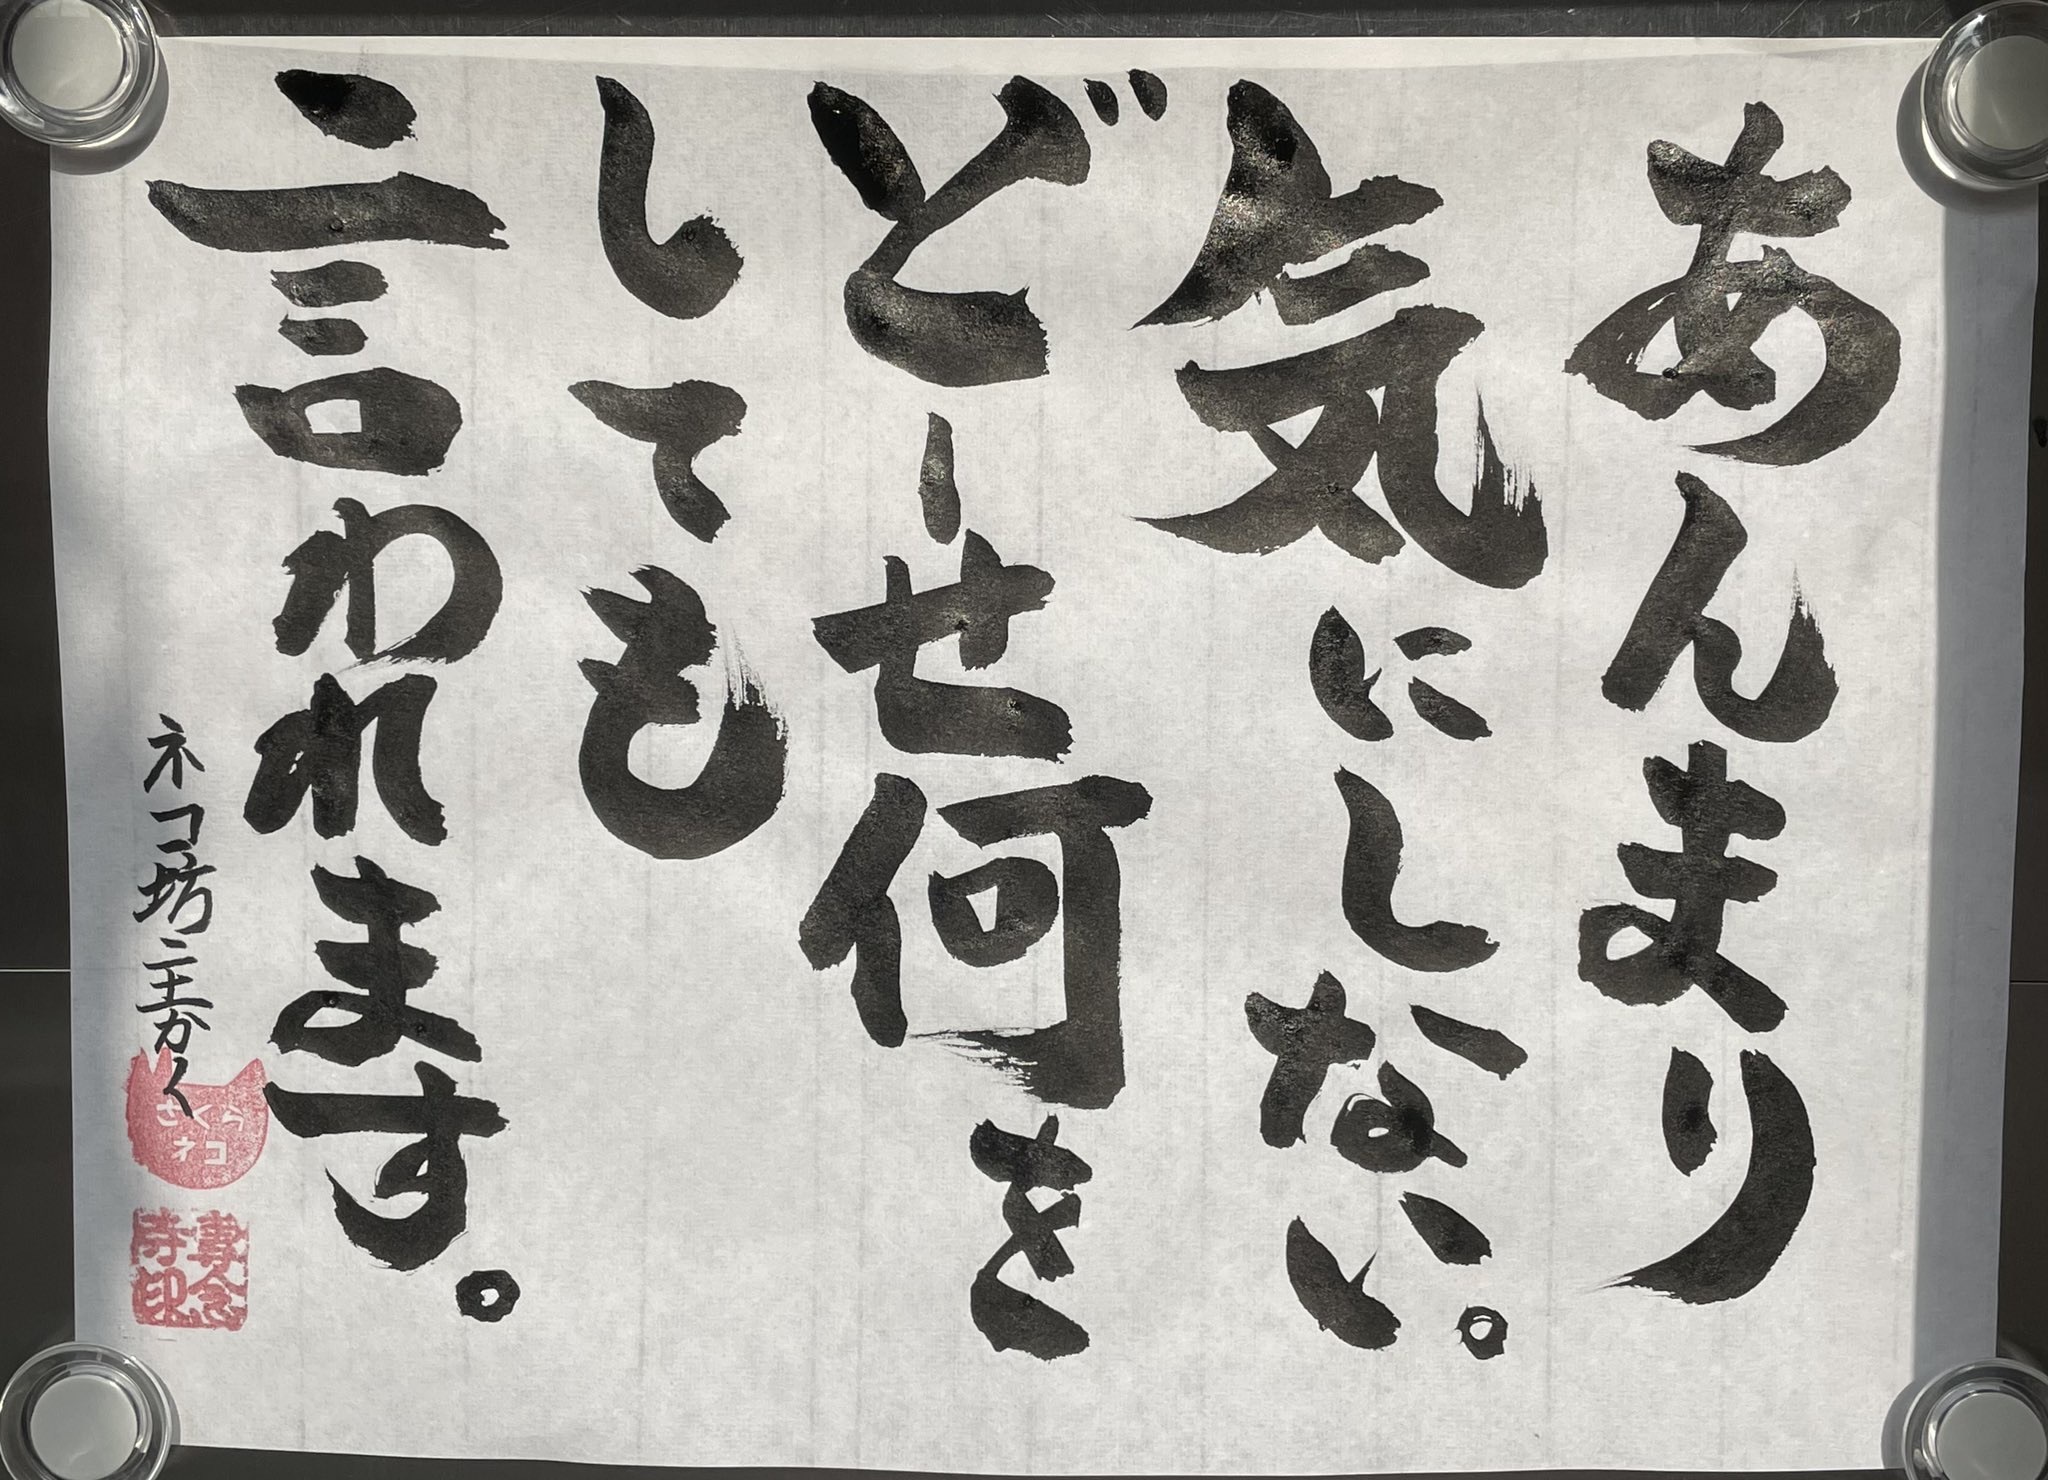 あんまり
気にしない。
どーせ何を
しても
言われます。
ネコ坊主かく
さくら
ネコ
專念
寺印